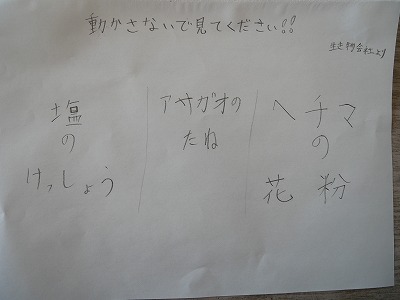 動かさないで見てください!!
生き物会社より
塩
の
けっしょう
アサガオの
たね
ヘチマ
の
花粉